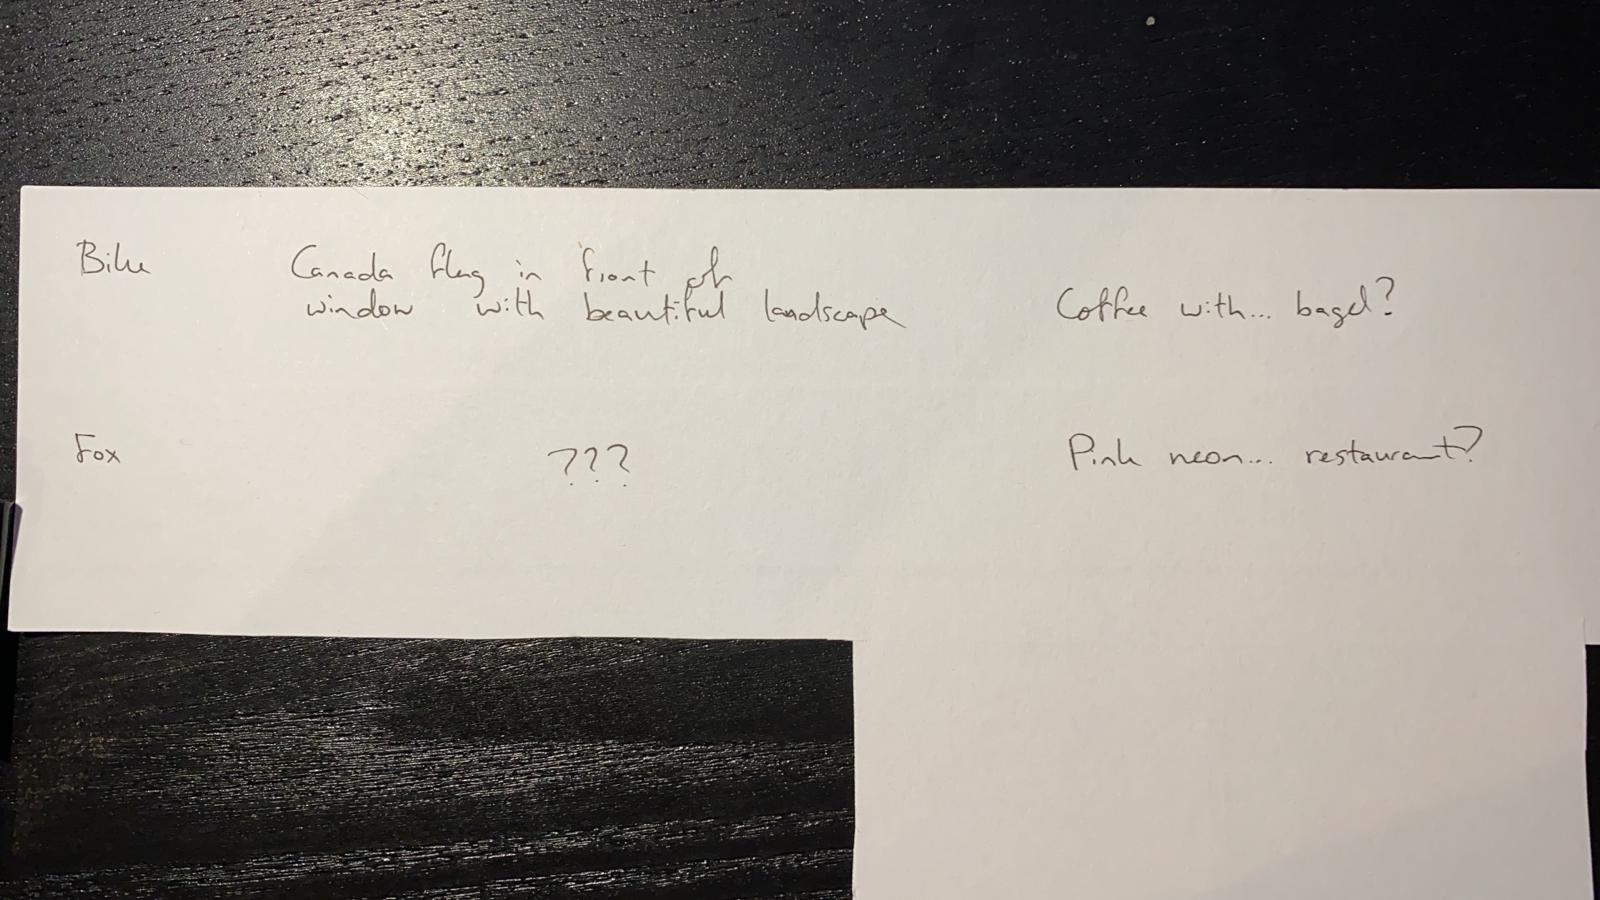 Bike
Canada flag in front of
window with beautiful landscape
Coffee with... bagel?
Fox
???
Pink neon... restaurant?